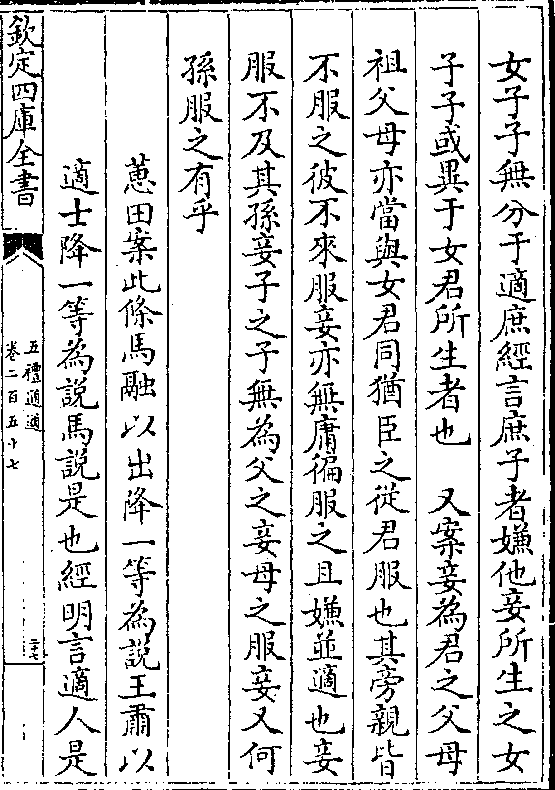 女子子無分于適庶經言庶子者嫌他妾所生之女
子子或異于女君所生者也　又案妾為君之父母
祖父母亦當與女君同猶臣之從君服也其旁親皆
不服之彼不來服妾亦無庸徧服之且嫌並適也妾
服不及其孫妾子之子無為父之妾母之服妾又何
孫服之有乎
蕙田案此條馬融以出降一等為說王肅以
適士降一等為說馬說是也經明言適人是
欽定四庫全書
五禮通適
卷二百五十七
二十七